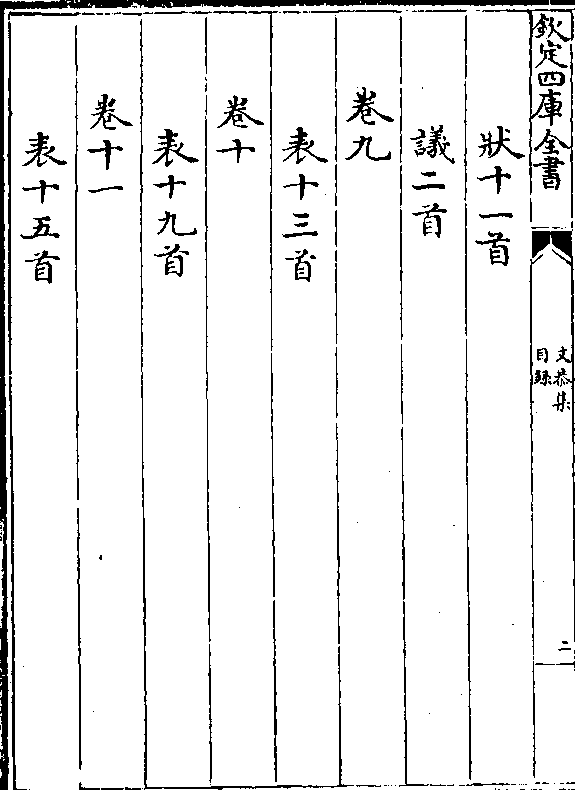 欽定四庫全書
文恭集
目錄
二
狀十一首
議二首
卷九
表十三首
卷十
表十九首
卷十一
表十五首